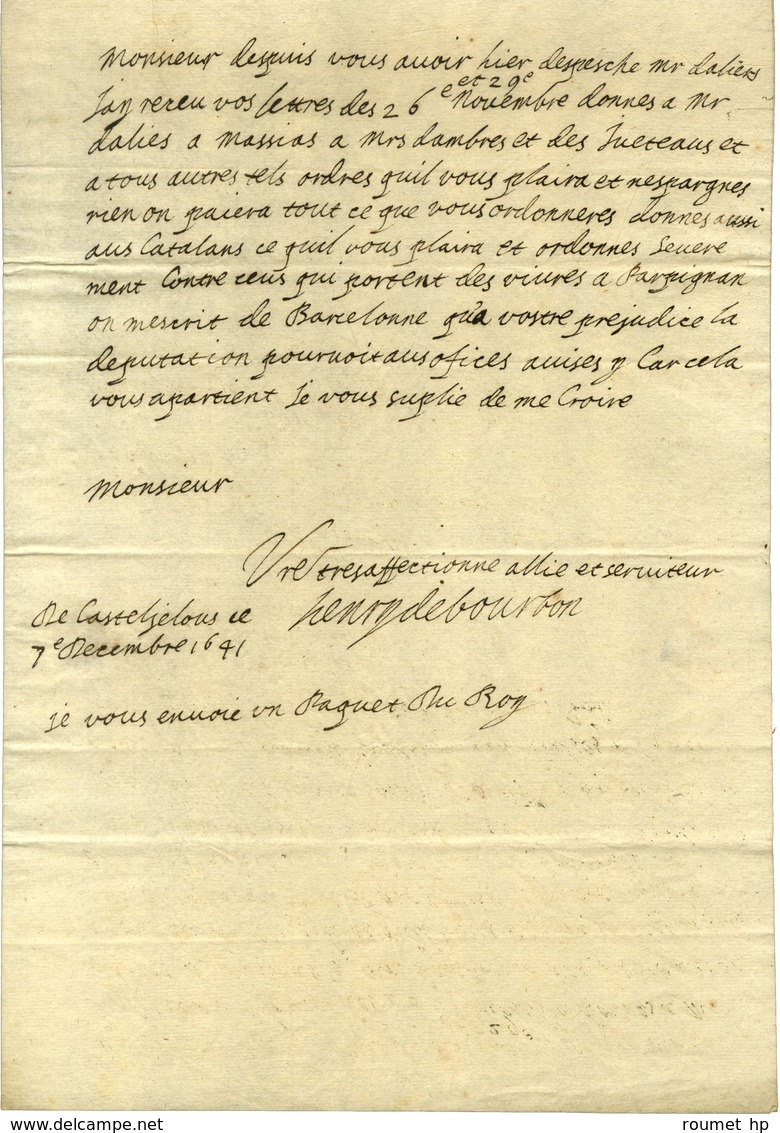 Monsieur despuis vous avoir hier despesche Mr daliers
Jay receu vos lettres des 26e et 29e Novembre donnes a Mr
dalies a Massias a Mrs dambres et des Jueteaus et
a tous autres tels ordres quil vous plaira et nespargnes
rien on paiera tout ce que vous ordonneres donnes aussi
aus Catalans ce quil vous plaira et ordonnes severe
ment Contre ceus qui portent des vivres a Parpignan
on mescrit de Barcelonne qua vostre prejudice la
deputation pourvoit aus ofices avises y Car cela
vous apartient Je vous suplie de me Croire
Monsieur
Vre tresaffectionne allie et serviteur
henry de bourbon
De Casteljelous ce
7e Decembre 1641
je vous envoie un Paquet Du Roy
www.delcampe.net
roumet hp